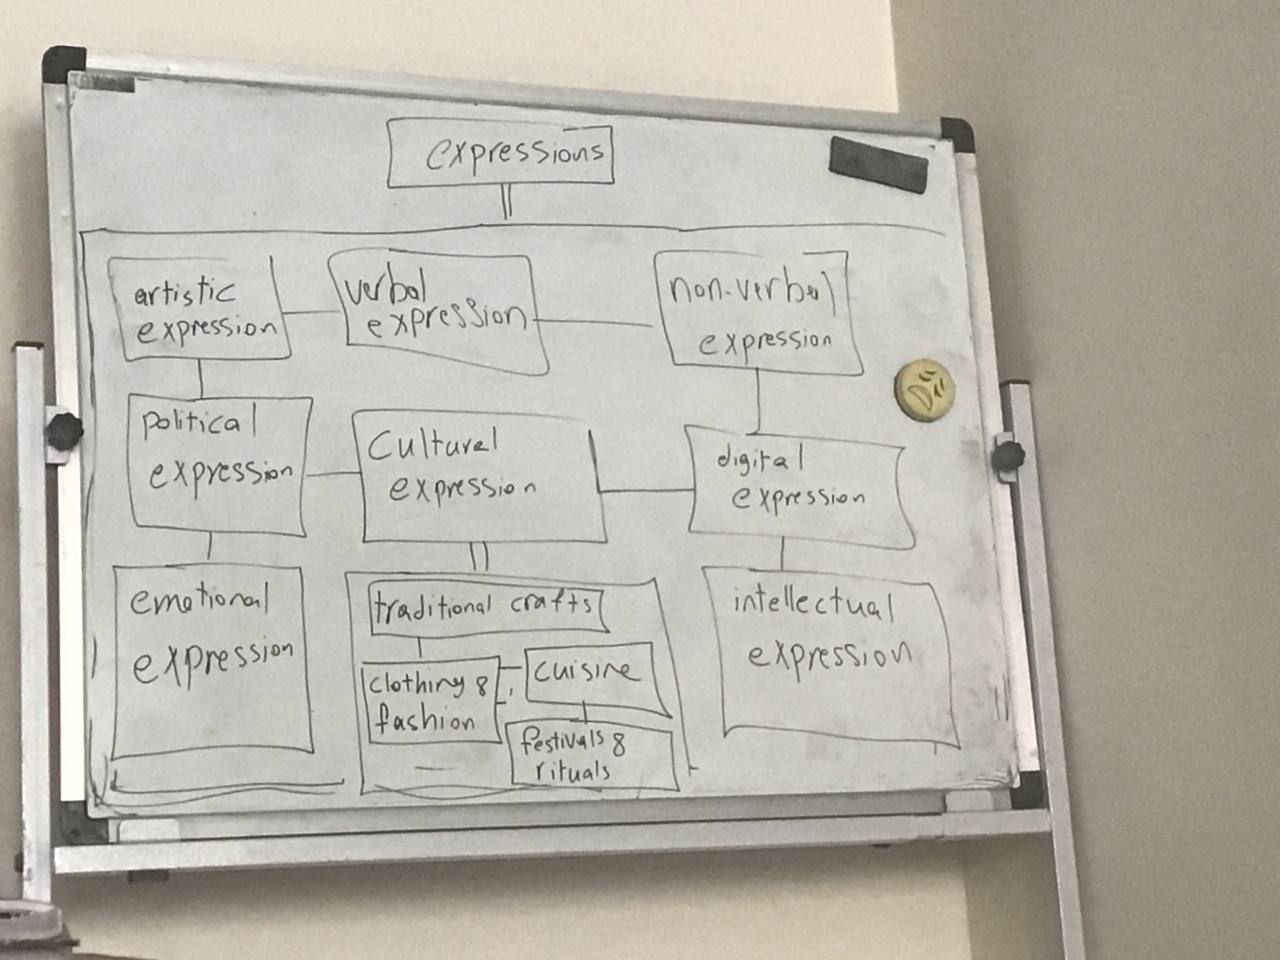 expressions
artistic
expression
verbal
expression
non-verbal
expression
political
expression
Cultural
expression
digital
expression
emotional
expression
traditional crafts
clothing &
fashion
cuisine
festivals &
rituals
intellectual
expression